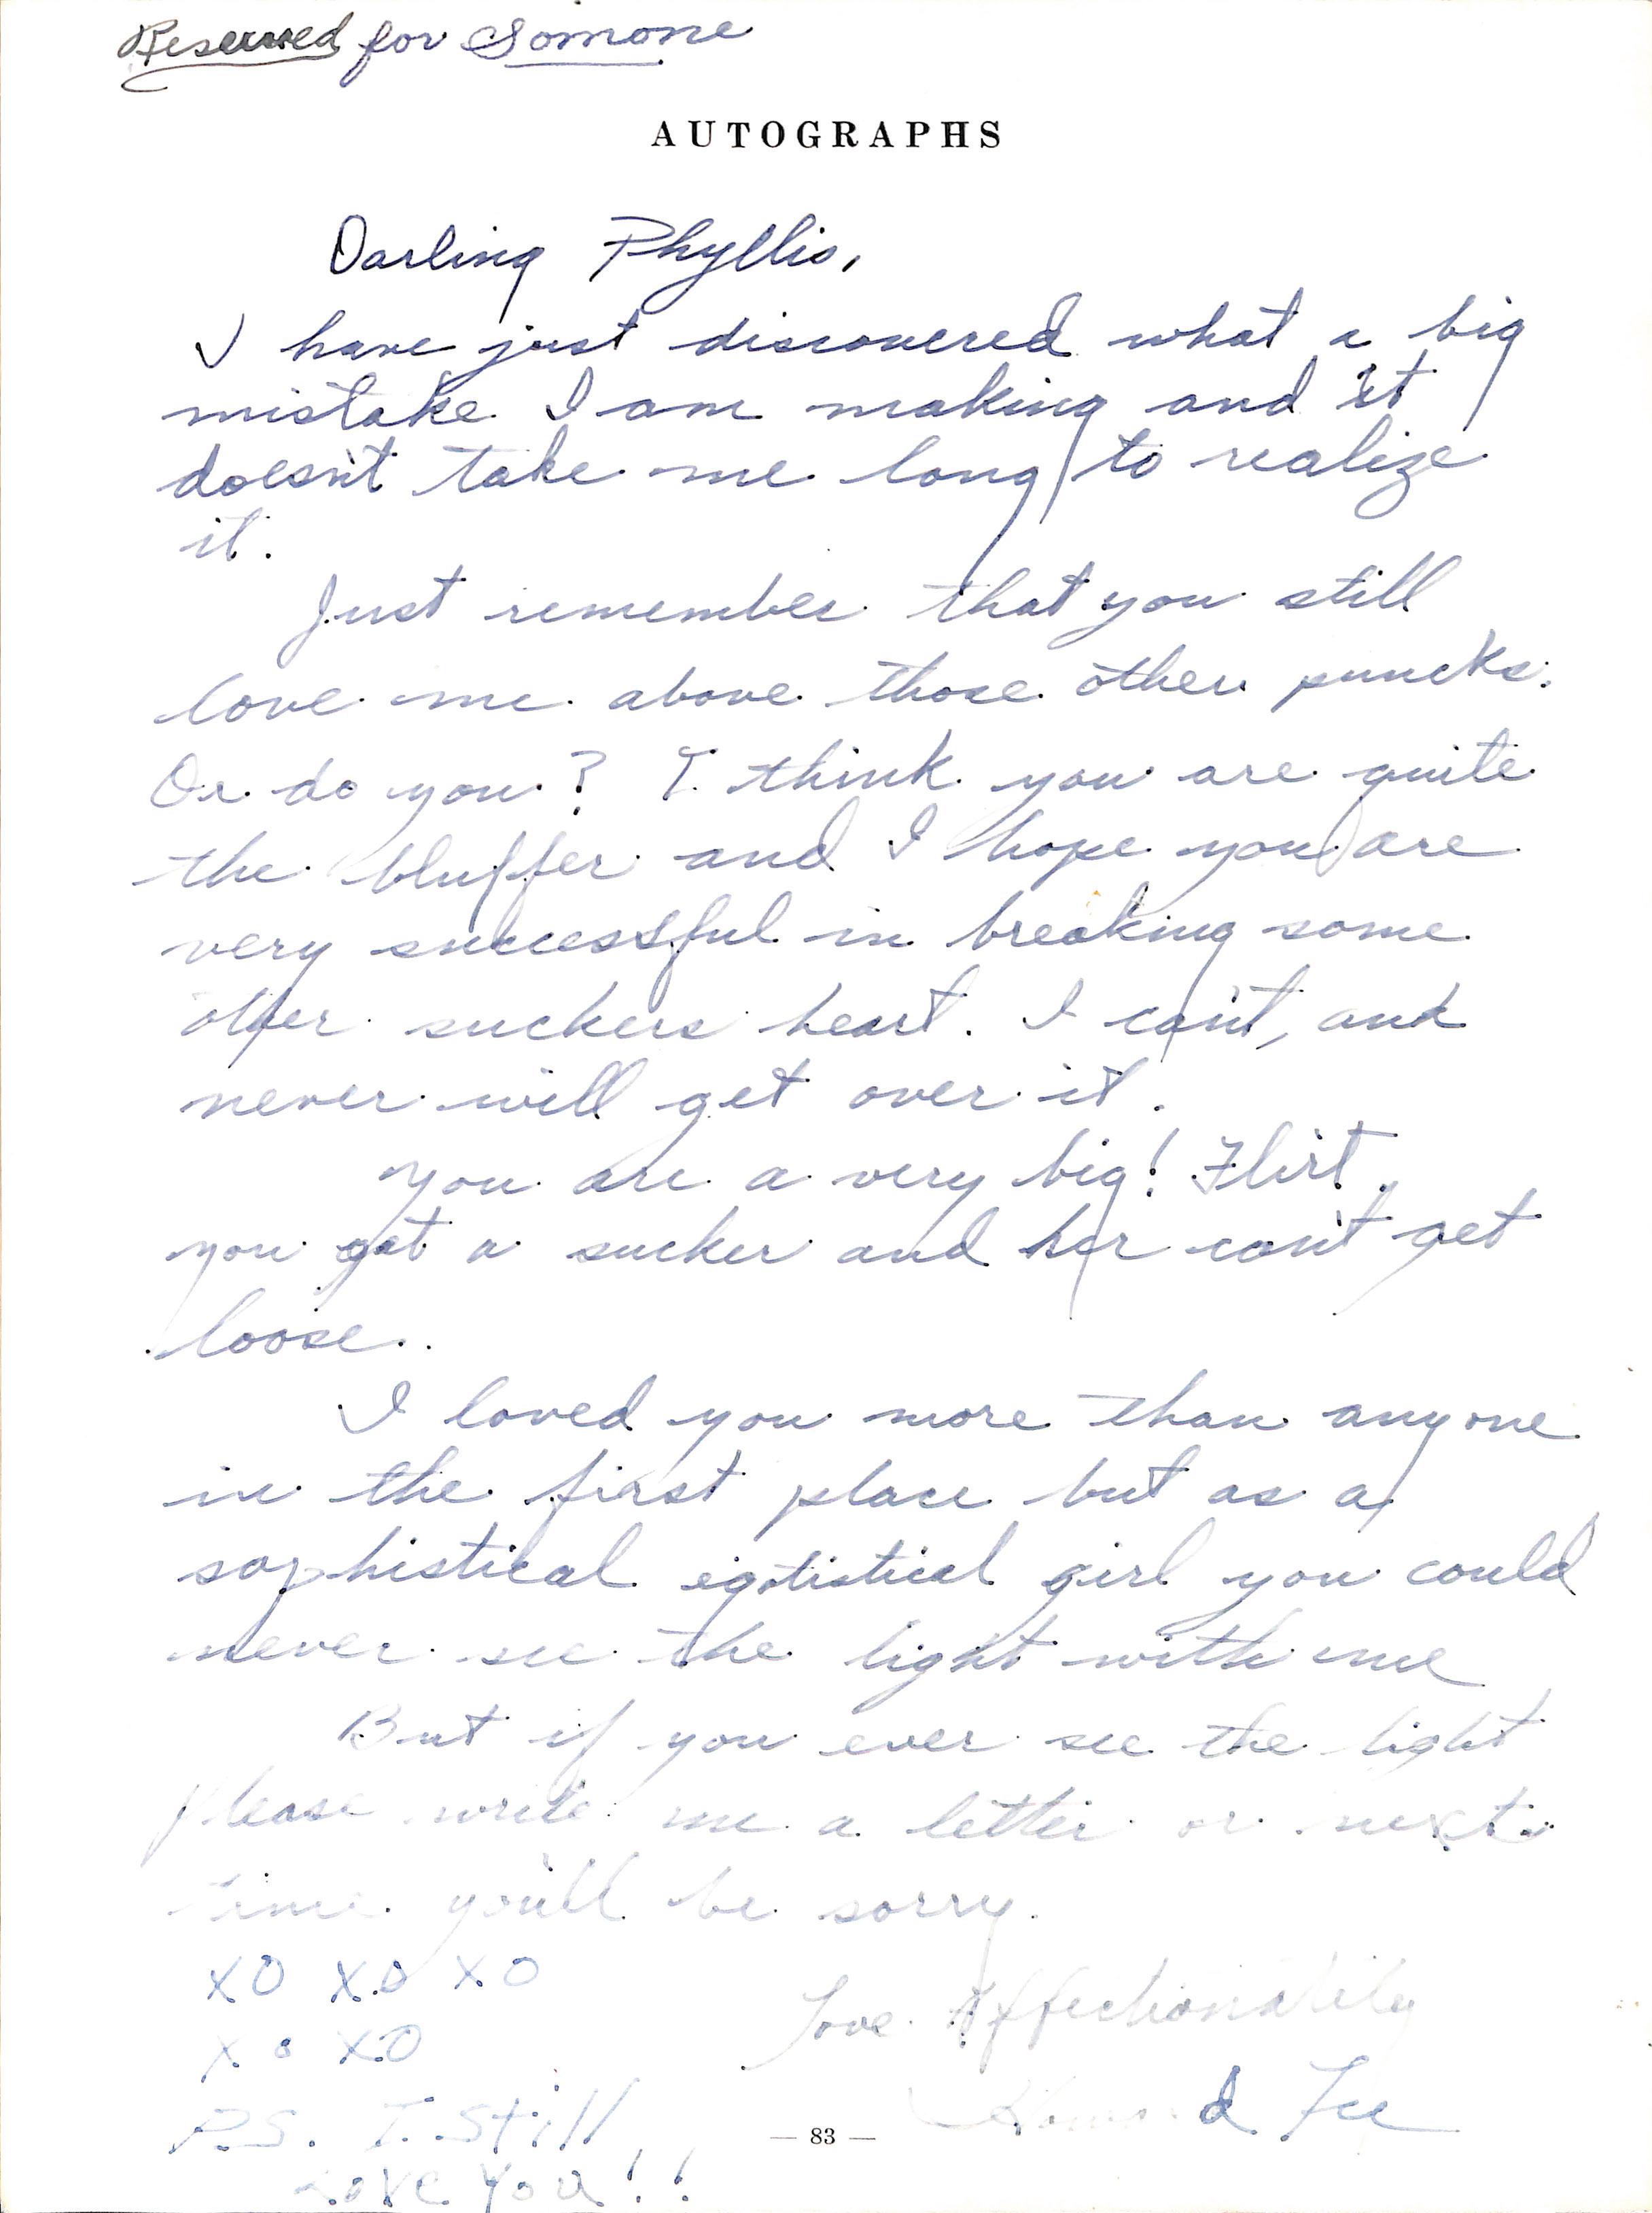 Reserved for Somone
AUTOGRAPHS
Darling Phyllis,
I have just discovered what a big
mistake I am making and it
doesn't take me long to realize
it.
Just remember that you still
love me above those other puncks.
Or do you? I think you are quite
the bluffer and I hope you are
very successful in breaking some
other suckers heart. I can't, and
never will get over it.
You are a very big! Flirt.
you got a sucker and her can't get
loose.
I loved you more than anyone
in the first place but as a
sophistical egotistical girl you could
never see the light with me
But if you ever see the light
please write me a letter or next
time you'll be sorry.
XO XO XO
Love Affectionately
XO XO
Howard
P.S. I Still
— 83 —
Love You!!